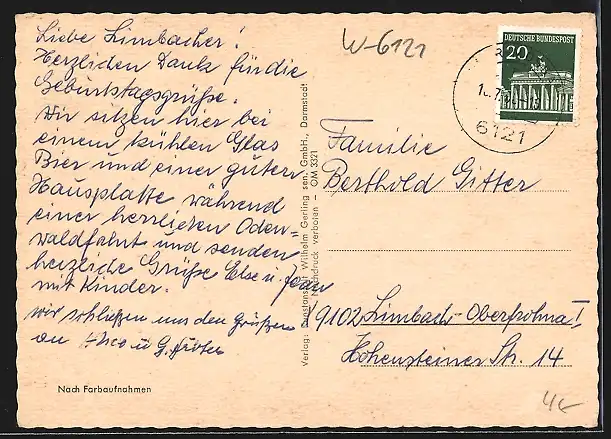 Liebe Limbacher!
Herzlichen Dank für die
Geburtstagsgrüße.
Wir sitzen hier bei
einem kühlen Glas
Bier und einer guten
Hausplatte während
einer herrlichen Oden-
waldfahrt und senden
herzliche Grüße Else u.
mit Kinder.
wir schließen uns den Grüßen
an u G.
Nach Farbaufnahmen
Verlag: Kunstanstalt Wilhelm Gerling sen. GmbH., Darmstadt
Nachdruck verboten – OM 3321
W-6121
DEUTSCHE BUNDESPOST
20
6121
Familie
Berthold Gitter
9102 Limbach-Oberfrohna I
Hohensteiner Str. 14
4€